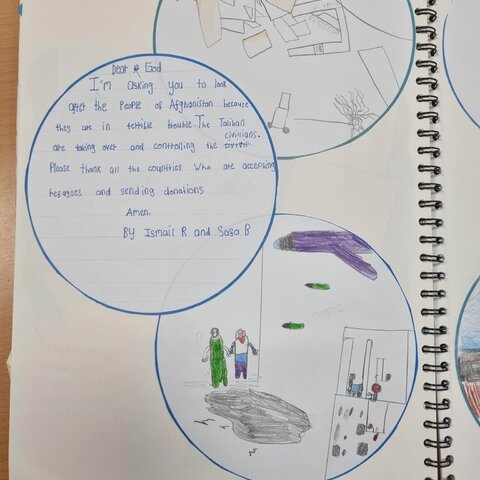 Dear God
I'm asking you to look
after the people of Afghanistan because
they are in terrible trouble. The Taliban
are taking over and controlling the civilians.
Please thank all the countries who are accepting
refugees and sending donations
Amen.
By Ismail R and Saga B